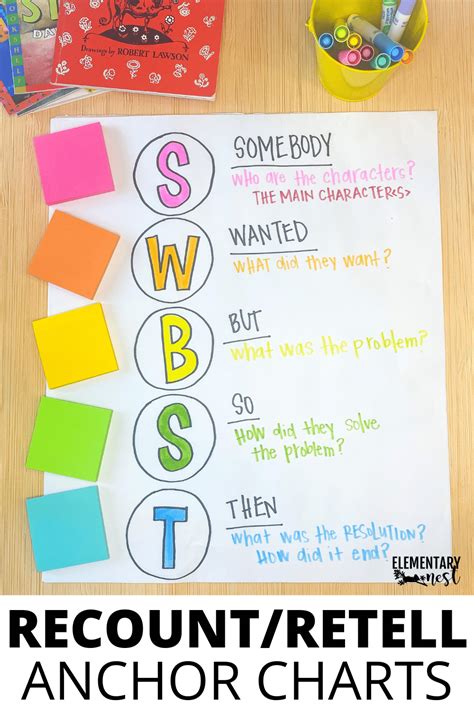 Drawings by ROBERT LAWSON
S
SOMEBODY
WHO are the characters?
THE MAIN CHARACTER<S>
W
WANTED
WHAT did they want?
B
BUT
what was the problem?
S
SO
HOW did they solve
the problem?
T
THEN
what was the RESOLUTION?
HOW did it end?
ELEMENTARY
nest
RECOUNT/RETELL
ANCHOR CHARTS